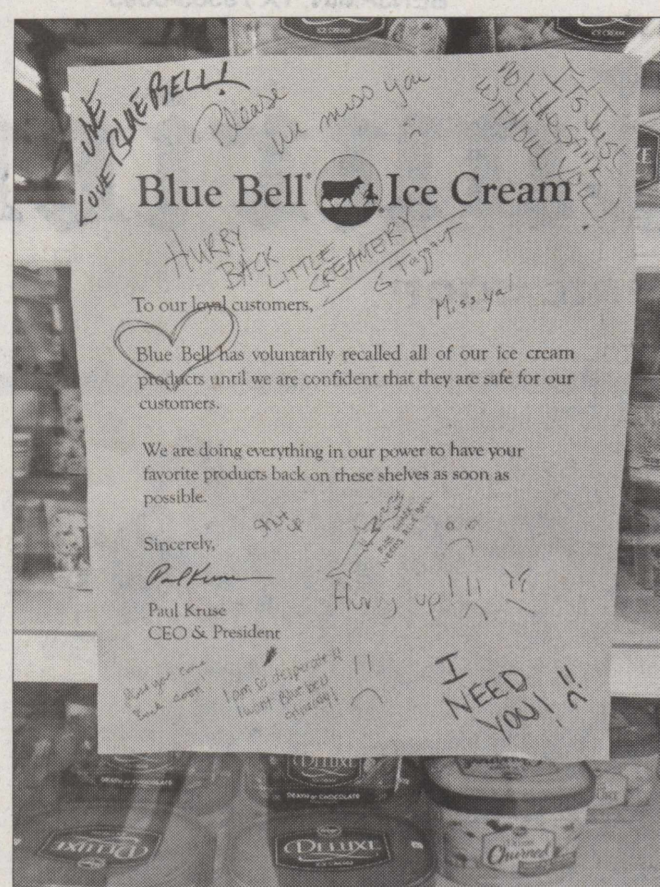 ICE CREAM
ICE CREAM
WE
LOVE BLUE BELL!
Please
We miss you
It's Just
not the same
without you!
Blue Bell Ice Cream
HURRY
BACK LITTLE
CREAMERY
G Taggart
Miss ya!
To our loyal customers,
Blue Bell has voluntarily recalled all of our ice cream
products until we are confident that they are safe for our
customers.
We are doing everything in our power to have your
favorite products back on these shelves as soon as
possible.
Sincerely,
Paul Kruse
Paul Kruse
CEO & President
NEEDS BLUE BELL
Hurry up!!!
come
back soon!
I am so desperate!!
I want Blue bell
I
NEED
YOU!!!
DEATH BY CHOCOLATE
DELUXE
DEATH BY CHOCOLATE
DELUXE
DELUXE
ICE CREAM
Churned